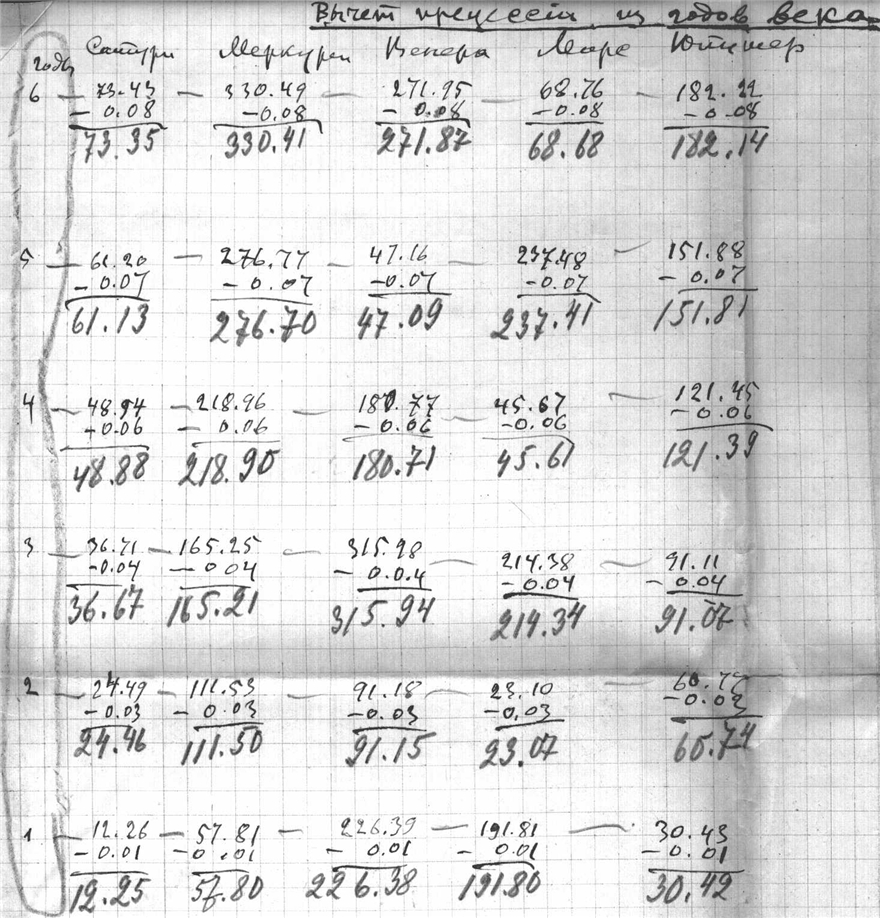 Вычет прецессии из годов века
годы Сатурн Меркурий Венера Марс Юпитер
6 — 73.43 — 330.49 — 271.95 — 68.76 — 182.22
- 0.08 - 0.08 - 0.08 - 0.08 - 0.08
73.35 330.41 271.87 68.68 182.14
5 — 61.20 — 276.77 — 47.16 — 237.48 — 151.88
- 0.07 - 0.07 - 0.07 - 0.07 - 0.07
61.13 276.70 47.09 237.41 151.81
4 — 48.94 — 218.96 — 180.77 — 45.67 — 121.45
- 0.06 - 0.06 - 0.06 - 0.06 - 0.06
48.88 218.90 180.71 45.61 121.39
3 — 36.71 — 165.25 — 315.98 — 214.38 — 91.11
- 0.04 - 0.04 - 0.04 - 0.04 - 0.04
36.67 165.21 315.94 214.34 91.07
2 — 24.49 — 111.53 — 91.18 — 23.10 — 60.77
- 0.03 - 0.03 - 0.03 - 0.03 - 0.03
24.46 111.50 91.15 23.07 60.74
1 — 12.26 — 57.81 — 226.39 — 191.81 — 30.43
- 0.01 - 0.01 - 0.01 - 0.01 - 0.01
12.25 57.80 226.38 191.80 30.42